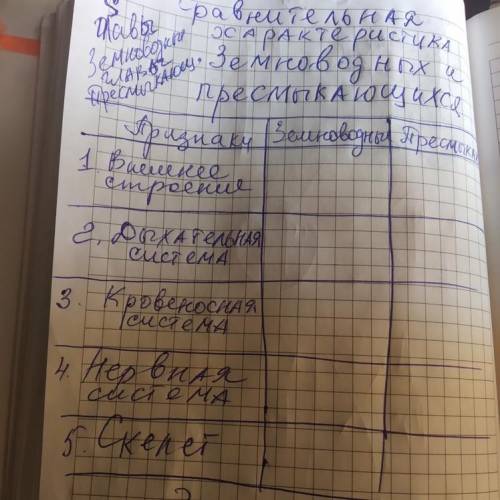 Сравнительная
характеристика
Земноводных и
пресмыкающихся
главы
Земноводных
главы
Пресмыкающ.
Признаки Земноводные Пресмык
1. Внешнее
строение
2. Дыхательная
система
3. Кровеносная
система
4. Нервная
система
5. Скелет